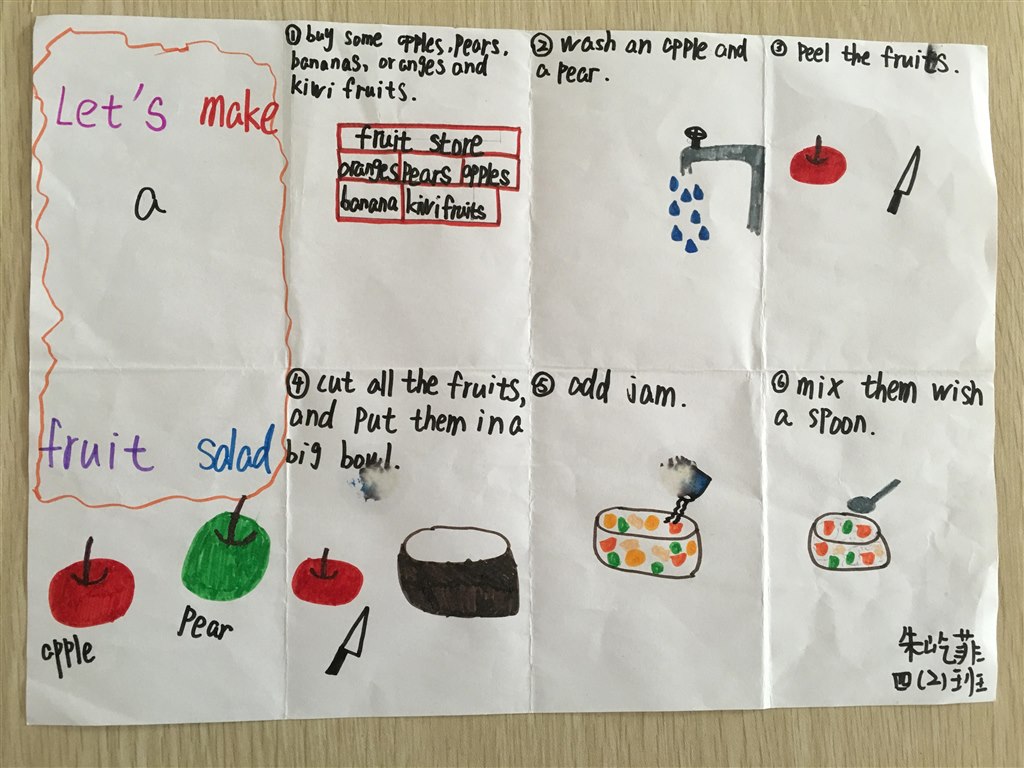 Let's make
a
fruit salad
apple
pear
① buy some apples, pears,
bananas, oranges and
kiwi fruits.
fruit store
oranges pears apples
banana kiwi fruits
② wash an apple and
a pear.
③ peel the fruits.
④ cut all the fruits,
and put them in a
big bowl.
⑤ add jam.
⑥ mix them wish
a spoon.
朱屹菲
四(2)班